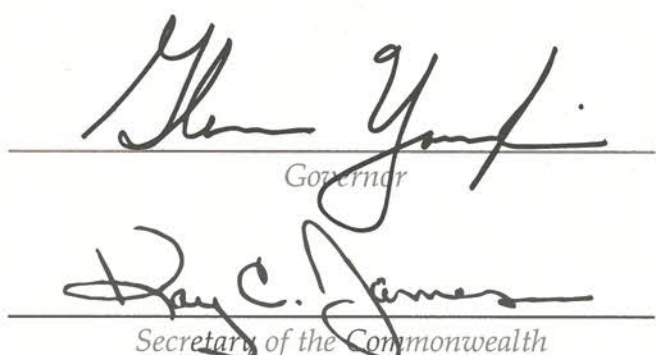 Glenn Youngkin
Governor
Kay C. James
Secretary of the Commonwealth